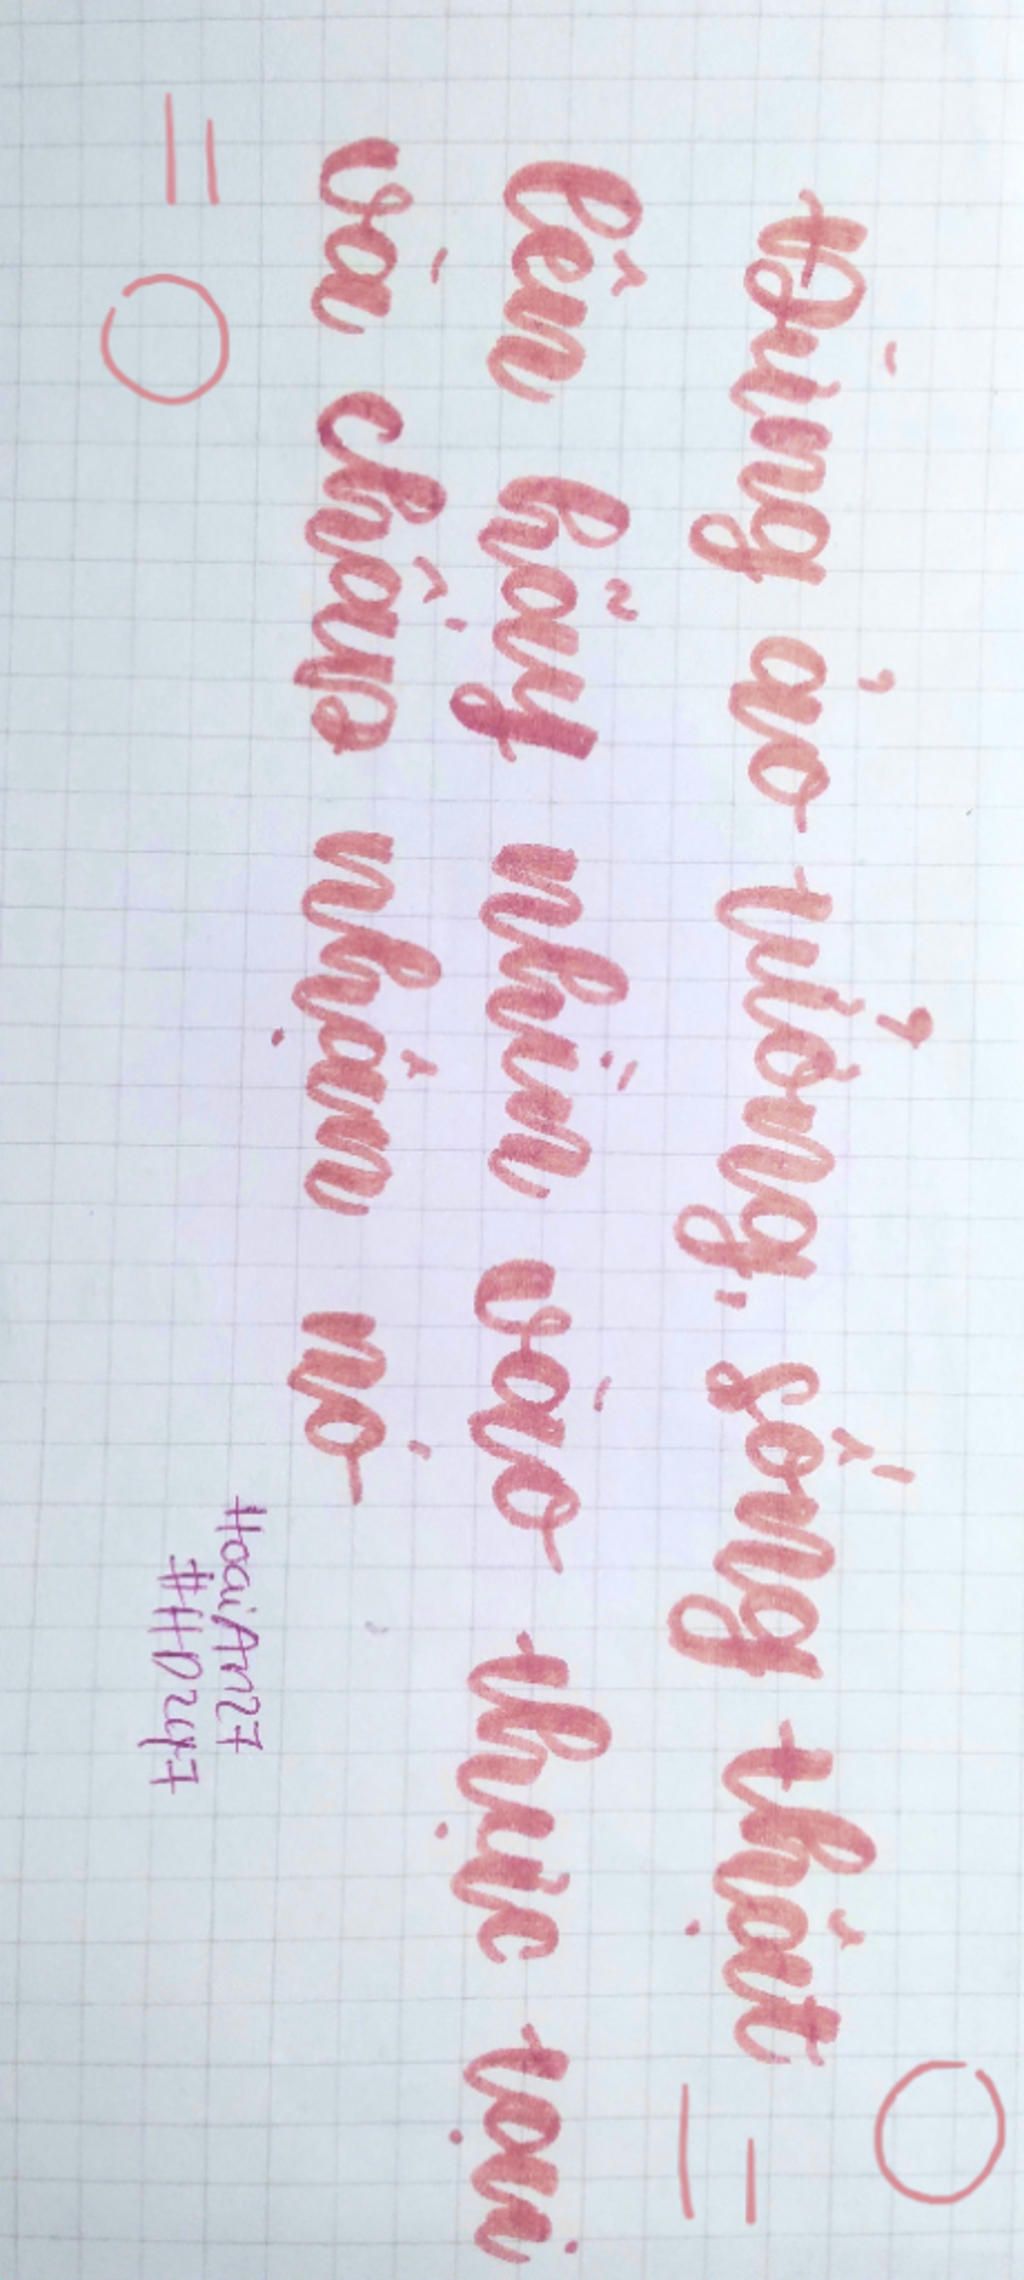 Đừng ảo tưởng, sống thật
lên hãy nhìn vào thực tại
và chấp nhận nó
HoaiAn27
#HD247